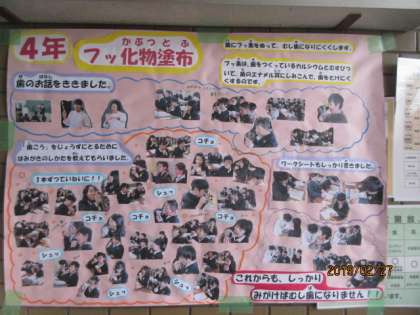 4年
かぶつとふ
フッ化物塗布
歯にフッ素をぬって、むし歯になりにくくします。
フッ素は、歯をつくっているカルシウムとむすびつ
いて、歯のエナメル質にしみこんで、歯をとけにく
くするのです。
は はなし
歯のお話をききました。
「歯こう」をじょうずにとるために
はみがきのしかたを教えてもらいました。
1本ずつていねいに！！
コチョ
コチョ
シュッ
シュッ
コチョ
コチョ
コチョ
シュッ
シュッ
シュッ
ワークシートもしっかり書きました。
これからも、しっかり
みがけばむし歯になりません！！
2019/02/27